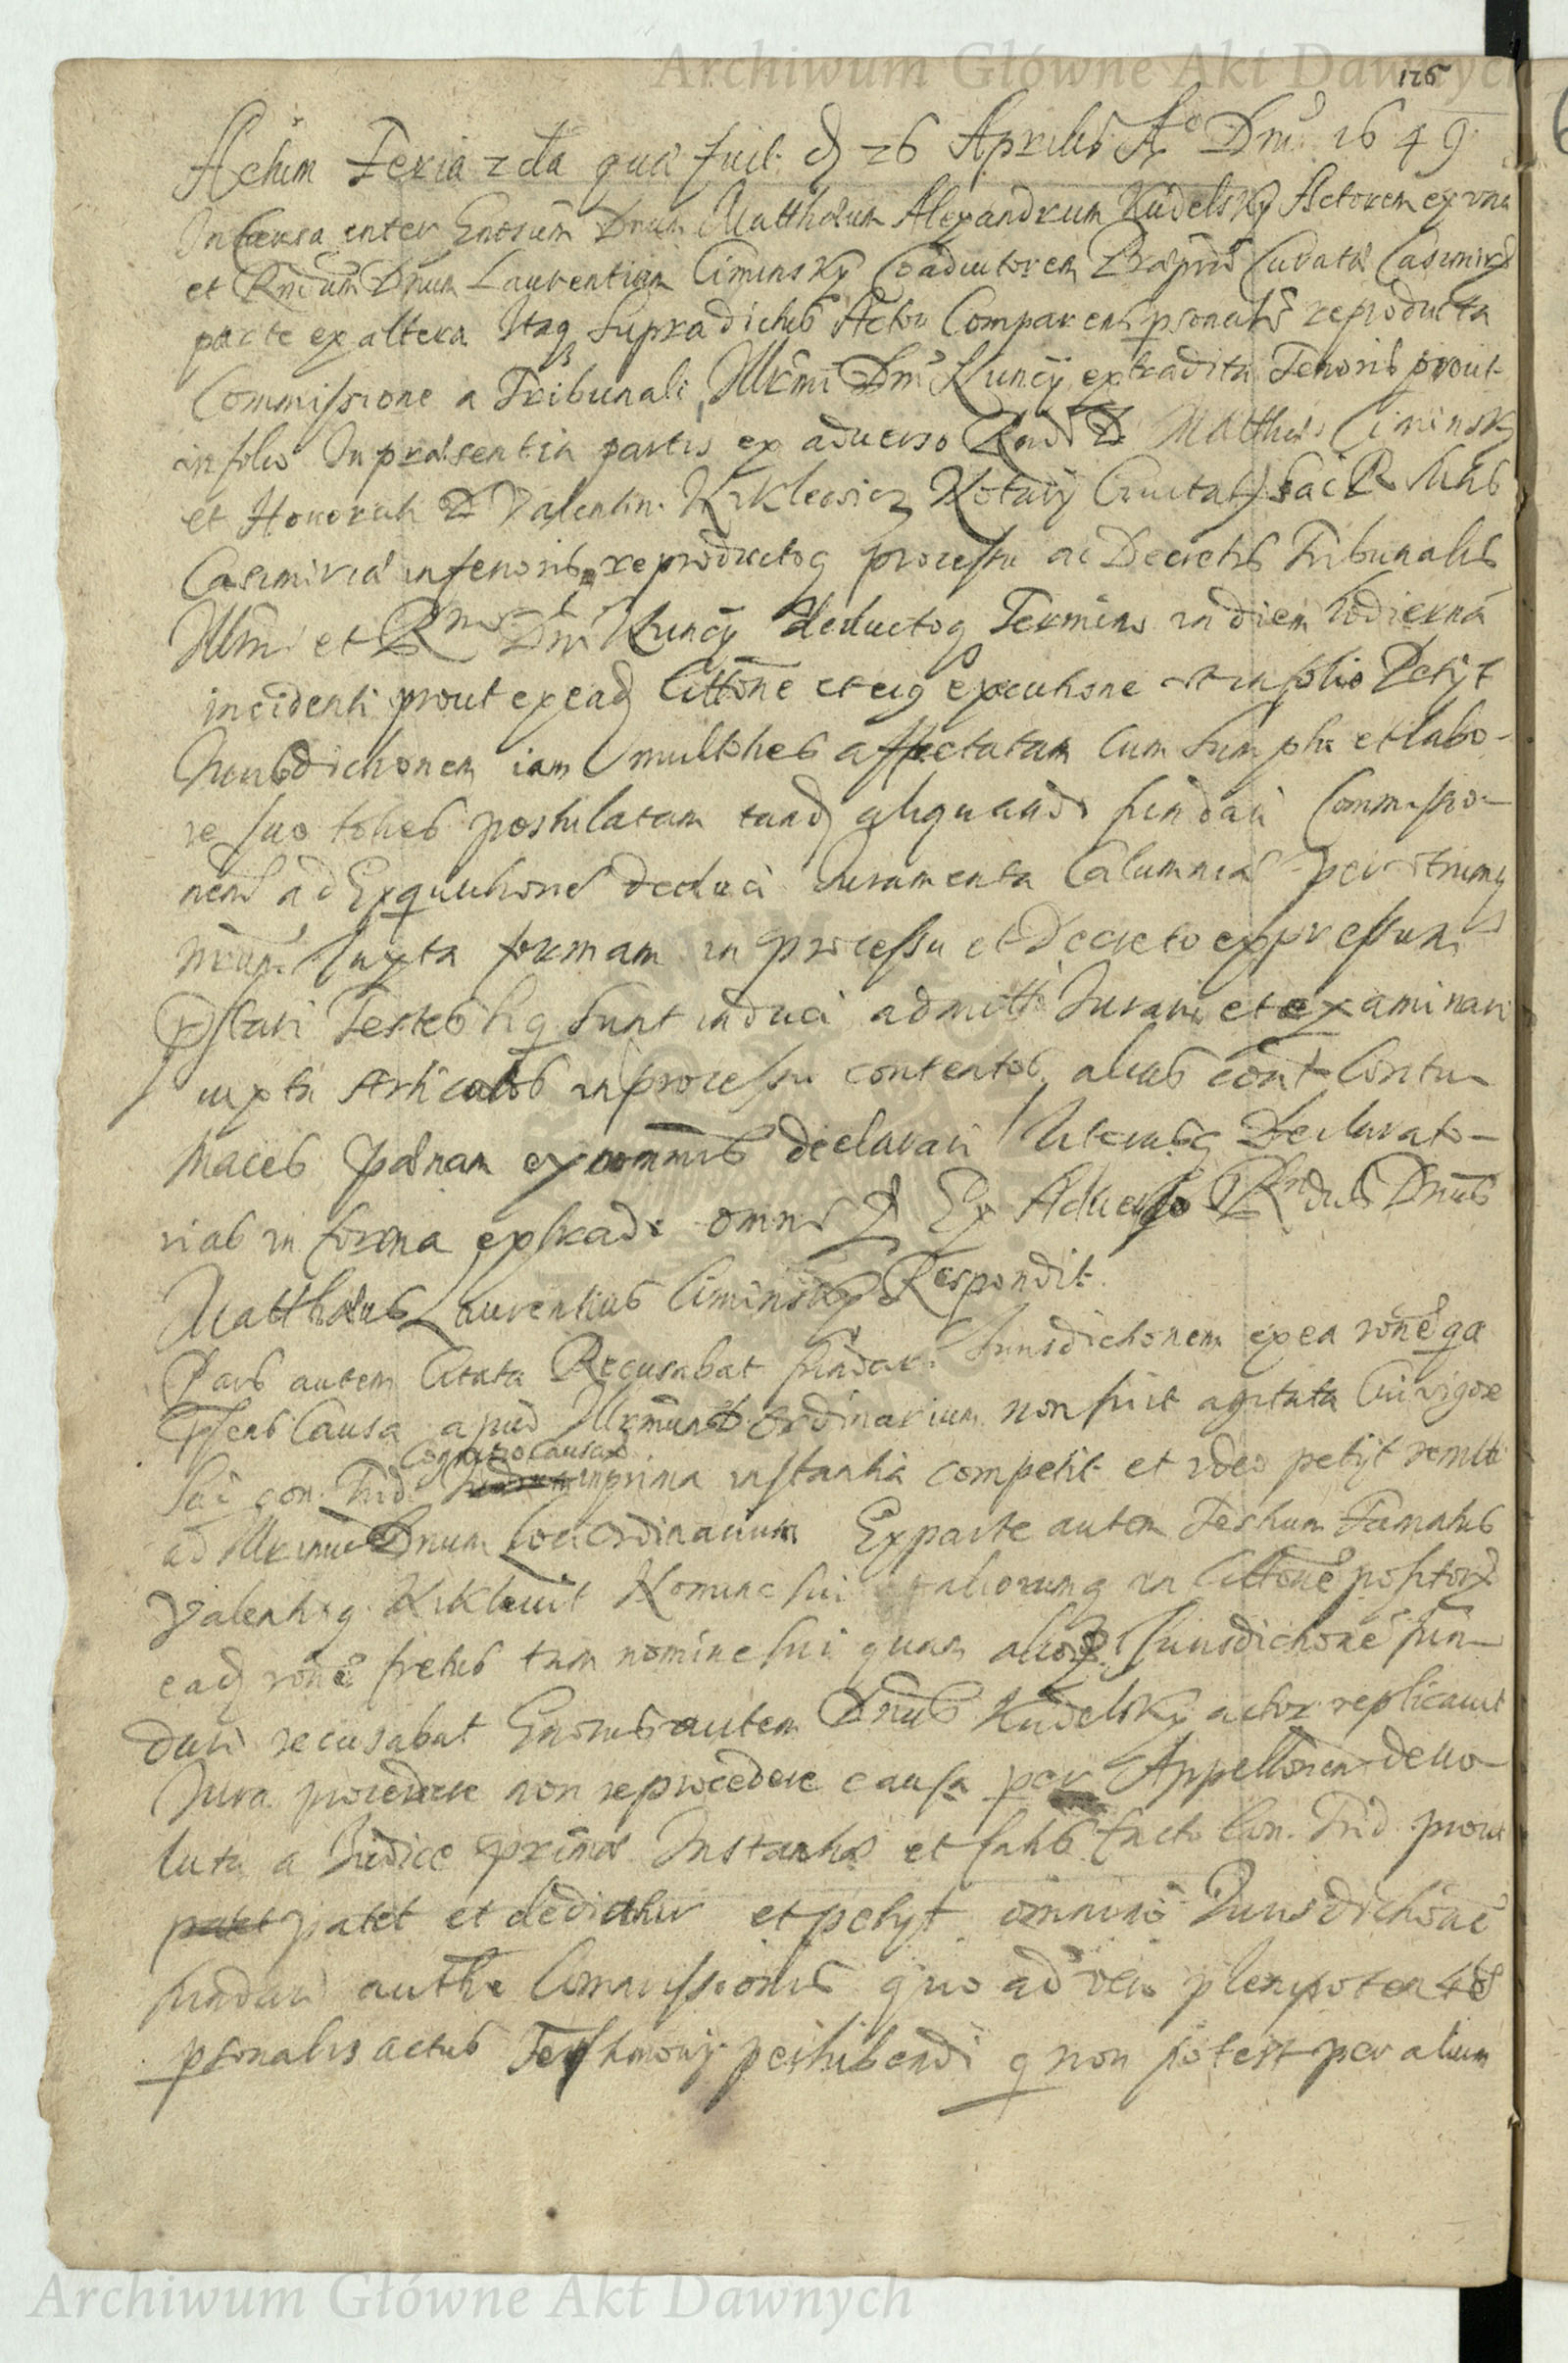 Archiwum Główne Akt Dawnych
126
Actum Feria 2da qua fuit d 26 Aprilis Ao Dni 1649
In Causa inter Gnosum Dnum Matthæum Alexandrum Kudelsky Actorem ex una
et Rndum Dnum Laurentium Ciminsky Coadiutorem Curatæ Casimiry
parte ex altera Itaq supradictus Actor Comparens psonalr reproducta
Commissione a Tribunali Illrmi Dni Nuncÿ extradita Tenoris prout
in folio In præsentia partis ex aduerso Rnd D Matthæi Ciminsky
et Honorati D Valentin. Kikleowicz Notarÿ Ciuitat Sac R Mtis
Casimiria in tenoris reproductoq processu ac Decretis Tribunalis
Illrmi et Rmi Dni Nuncÿ deductoq Termino in diem hodierna
incidenti prout ex ead Cittone et eiq executione in folio Petÿt
Iurisdictionem iam multoties affectatam cum sumptu et labo-
re suo toties postulatam tand aliquando fundari Commissio-
nem ad Exequutionē deduci Iuramenta Calumniæ per utrumq
iuxta formam in processu et Decreto expressum
pstari Testes hiq sunt induci admitti Iurari et examinari
iuxta Articulos in processu contentos, alias cont Contu-
maces pœnam excommis declarari Literasq Declarato-
rias in forma extradi omni Ex Aduerso Rndus Dnus
Matthæus Laurentius Ciminsky Respondit.
Pars autem Citata Recusabat fundari Iurisdictionem ex ea ronē qa
psens Causa apud Illrmum D. Ordinarium non fuit agitata Cui vigore
Cognitio Causaru
Sac Con. Trid. in prima instantia competit et ideo petÿt remitti
ad Illrmum Dnum Loci Ordinarium Ex parte autem Testium Famatus
Valentinq Kiklewit Nomine sui aliorumq in Cittonē positoru
ead ronē fretus tam nomine sui quam alioru Iurisdictionē fun-
dari recusabat Gnosus autem Dnus Kudelsky actor replicauit
Iura procedere non reprocedere causa per Appellonem deuo-
luta a Iudice primæ Instantiæ et satis facto Con. Trid. prout
patet et dedicitur et petÿt omnino Iurisdictionē
fundari authe Commissionis quo ad vero plenipotentes
psonalis actus Testimonÿ perhibendi q non potest per alium
Archiwum Główne Akt Dawnych